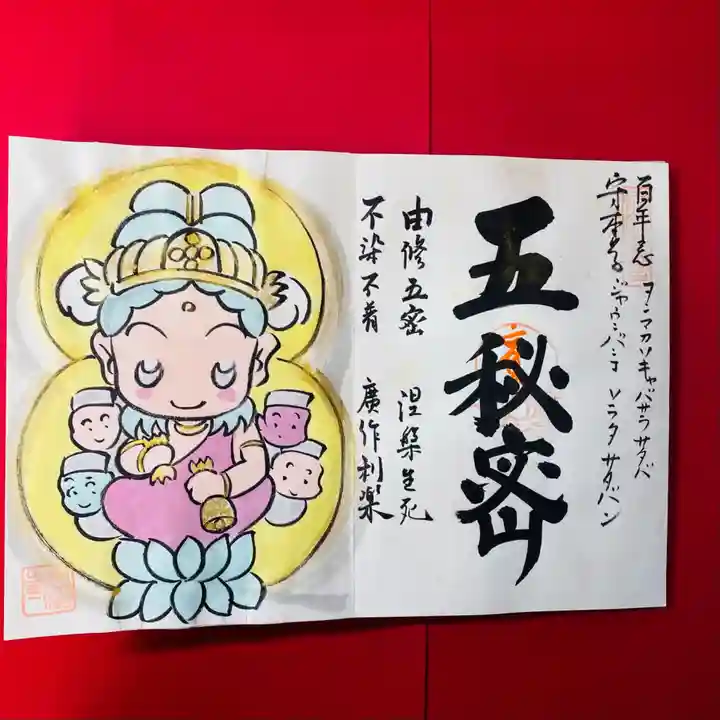 ヲンマカソキャバサラサタバ
ジャクウンバンコ ソラタ サタバン
五秘密
由修五密 涅槃生死
不染不着 廣作利樂